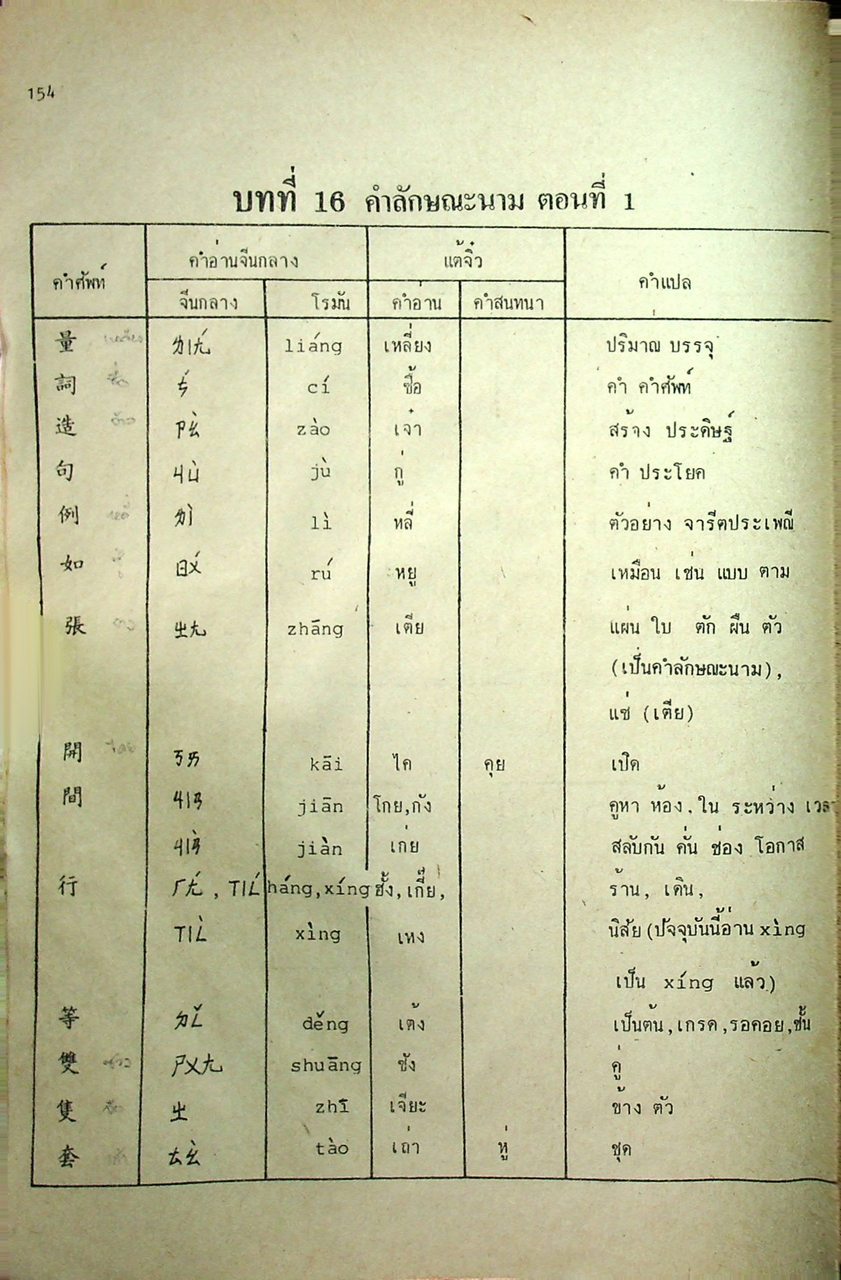 154
บทที่ 16 คำลักษณะนาม ตอนที่ 1
คำศัพท์ คำอ่านจีนกลาง แต้จิ๋ว คำแปล
จีนกลาง โรมัน คำอ่าน คำสนทนา
量 ㄌㄧㄤˊ liáng เหลี่ยง ปริมาณ บรรจุ
詞 ㄘˊ cí ซื้อ คำ คำศัพท์
造 ㄗㄠˋ zào เจ๋า สร้าง ประดิษฐ์
句 ㄐㄩˋ jù กู่ คำ ประโยค
例 ㄌㄧˋ lì หลี่ ตัวอย่าง จารีตประเพณี
如 ㄖㄨˊ rú หยู เหมือน เช่น แบบ ตาม
張 ㄓㄤ zhāng เตีย แผ่น ใบ ตัก ผืน ตัว
(เป็นคำลักษณะนาม),
แซ่ (เตีย)
開 ㄎㄞ kāi ไค คุย เปิด
間 ㄐㄧㄢ jiān โกย,กัง คูหา ห้อง, ใน ระหว่าง เวลา
ㄐㄧㄢˋ jiàn เก่ย สลับกัน คั่น ช่อง โอกาส
行 ㄏㄤˊ, ㄒㄧㄥˊ háng,xíng ฮั้ง, เกี๊ย, ร้าน, เดิน,
ㄒㄧㄥˋ xìng เหง นิสัย (ปัจจุบันนี้อ่าน xìng
เป็น xíng แล้ว)
等 ㄉㄥˇ děng เต้ง เป็นต้น,เกรด,รอคอย,ชั้น
雙 ㄕㄨㄤ shuāng ซัง คู่
隻 ㄓ zhī เจียะ ข้าง ตัว
套 ㄊㄠˋ tào เถ่า หู่ ชุด